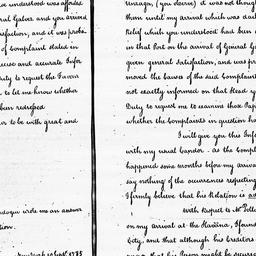 understood was afforded
Galvez and you arrived
satisfaction, and it was proba
of Complaint stated in
precise and accurate Infor
Duty to request the Favour
to let me know whether
been redressed
to be with great and
wrote me an answer
tion.
New York 19 Augt. 1785
Unzaga, (you observe) it was not though
them until my arrival which was dail
Relief which you understood had been
on that Port on the arrival of General G
given general Satisfaction, and was pr
moved the Causes of the said Complaint
not exactly informed on that Head y
Duty to request me to examine those Pap
whether the Complaints in question ha
I will give you this Info
with my usual Candor. as the Compl
happened some months before my arriva
say nothing of the occurrences respecting
I firmly believe that his Relation is
with Respect to Mr. Polloc
on my arrival at the Havana, I foun
City, and that although his Creditors
his Person might be secured